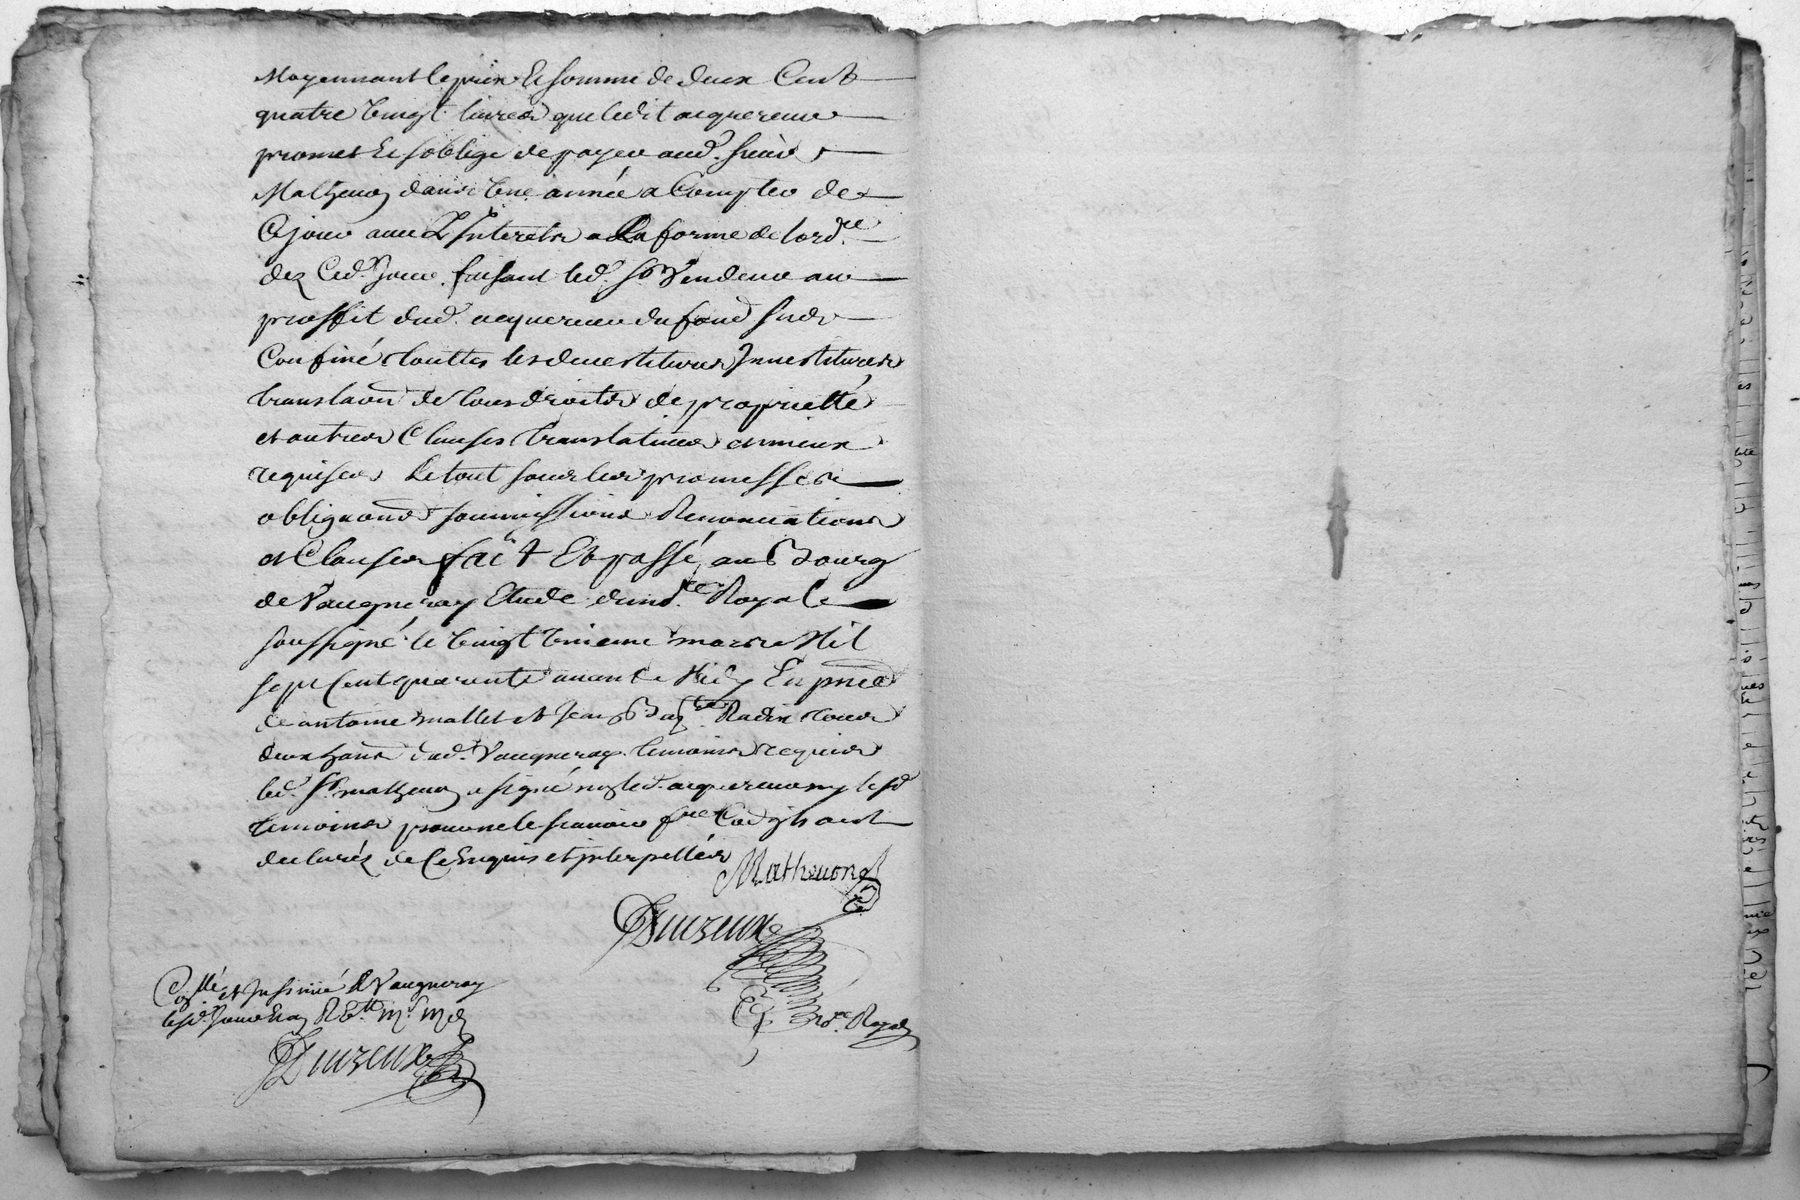 Moyennant le prix Et somme de deux Cent
quatre Vingt livres que ledit acquereur
promet Et soblige de payer aud. sieur
Mathevon dans Une année a Compter de
Ce jour avec L'Interetz a la forme de lord.ce
dez Ced. Jour. faisant led. Sr Vendeur au
proffit dud. acquereur du fond susd.
Confiné touttes les devestitures Investitures
translaōn de tous droits de proprietté
et autres Clauses translatives et mieux
requises Le tout sous les promesses
obligaōns soumissions Renonciations
et Clauses fait Et passé au Bourg
de Vaugneray Etude du no.re Royal
soussigné le Vingt Unieme mars Mil
sept Cent quarente avant Midy En pnce
de antoine mallet et Jean Bap.te Radix tous
deux hans dud. Vaugneray temoins requis
led. Sr. mathevon a signé non led. acquereur ny lesd
temoins pour ne le scavoir
declarés de Ce Enquis et jnterpellés
Mathevon
no.re Royal
Con.llé et Jnsinué A Vaugneray